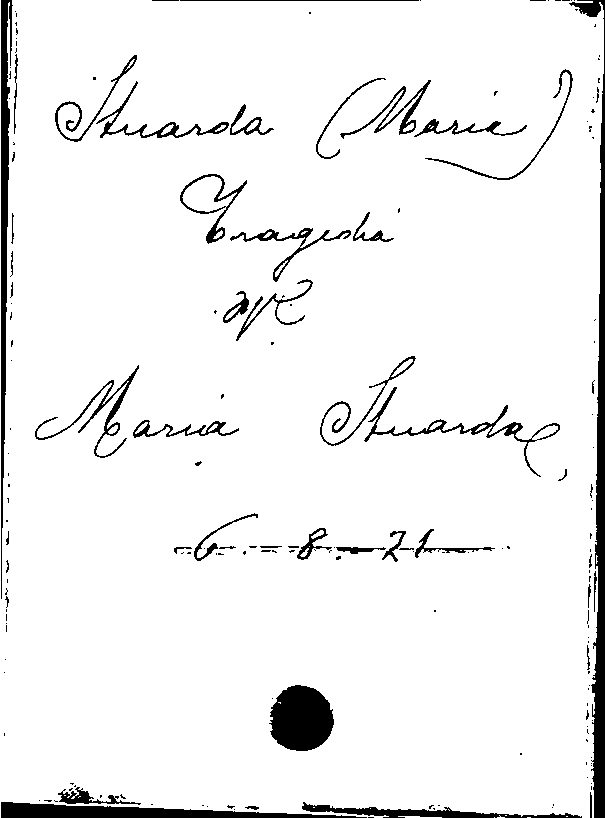 Stuarda (Maria)
Tragedia
Maria Stuarda
6-8-21